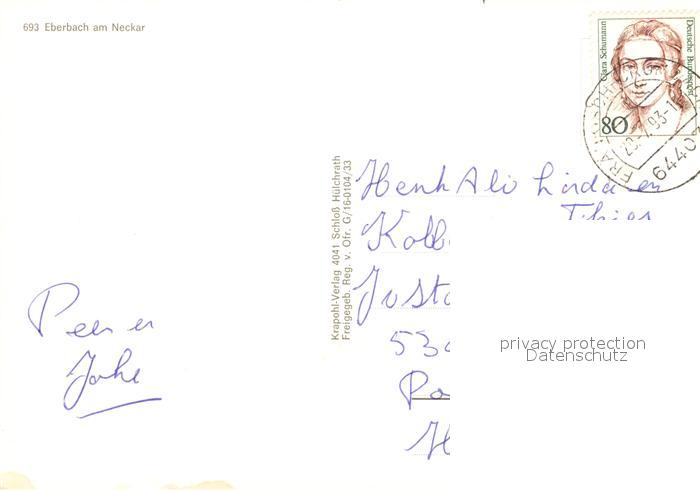 693 Eberbach am Neckar
Clara Schumann
Deutsche Bundespost
80
6440
Krapohl-Verlag 4041 Schloß Hülchrath
Freigegeb. Reg. v. Ofr. G/16-0104/33
Henk Ali Linda en
Kolb
Justo
53
Po
H
Peer en
Joke
privacy protection
Datenschutz